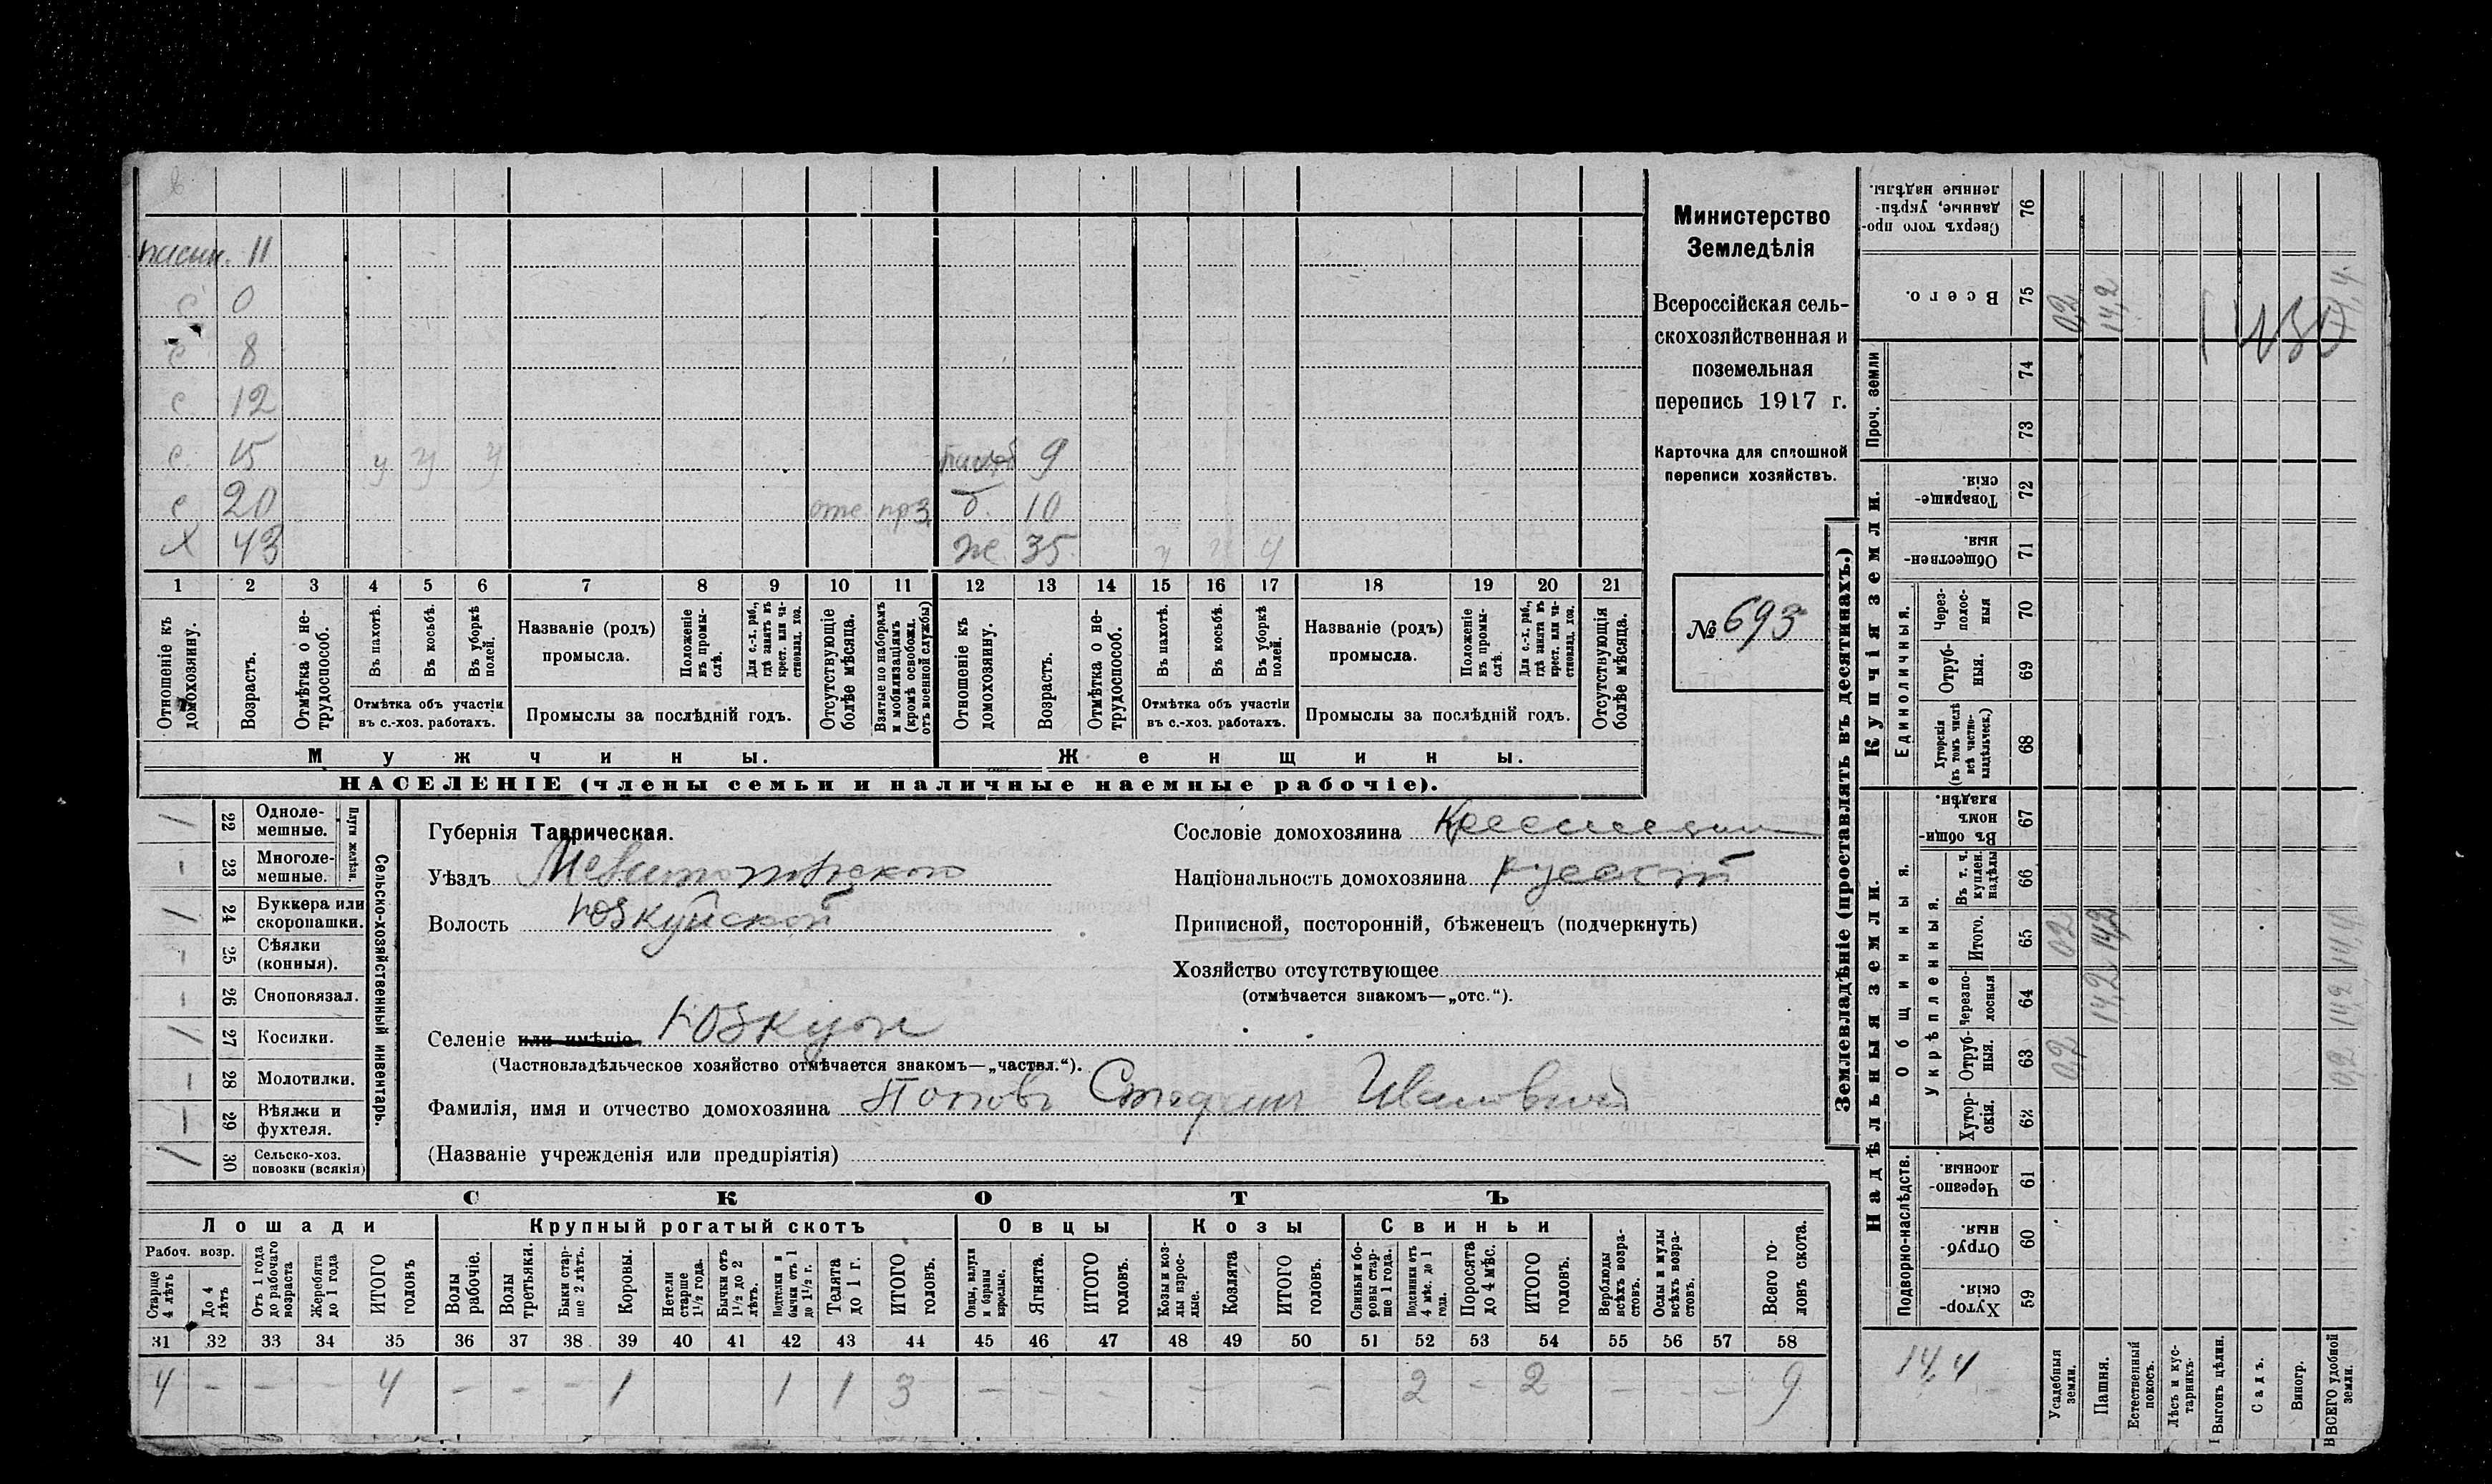 пасын. 11
с 0
с 8
с 12
с. 15 у у у
9
с 20 отс прз. б. 10
х 43 же. 35 у у у
1 2 3 4 5 6 7 8 9 10 11 12 13 14 15 16 17 18 19 20 21
Отношеніе къ домохозяину.
Возрастъ.
Отмѣтка о не-трудоспособ.
Въ пахотѣ.
Въ косьбѣ.
Въ уборкѣ полей.
Отмѣтка объ участіи въ с.-хоз. работахъ.
Названіе (родъ) промысла.
Положеніе въ промы-слѣ.
Для с.-х. раб., гдѣ занятъ въ крест. или ча-стновлад. хоз.
Промыслы за послѣдній годъ.
Отсутствующіе болѣе мѣсяца.
Взятые по наборамъ и мобилизаціямъ (кромѣ освобожд. отъ военной службы)
Отношеніе къ домохозяину.
Возрастъ.
Отмѣтка о не-трудоспособ.
Въ пахотѣ.
Въ косьбѣ.
Въ уборкѣ полей.
Отмѣтка объ участіи въ с.-хоз. работахъ.
Названіе (родъ) промысла.
Положеніе въ промы-слѣ.
Для с.-х. раб., гдѣ занята въ крест. или ча-стновлад. хоз.
Промыслы за послѣдній годъ.
Отсутствующія болѣе мѣсяца.
Мужчины. Женщины.
НАСЕЛЕНІЕ (члены семьи и наличные наемные рабочіе).
Министерство
Земледѣлія
Всероссійская сель-
скохозяйственная и
поземельная
перепись 1917 г.
Карточка для сплошной
переписи хозяйствъ.
№ 693
/ 22 Одноле-мешные.
- 23 Многоле-мешные.
Плуги желѣзн.
/ 24 Буккера или скоропашки.
- 25 Сѣялки (конныя).
- 26 Сноповязал.
/ 27 Косилки.
- 28 Молотилки.
- 29 Вѣялки и фухтеля.
/ 30 Сельско-хоз. повозки (всякія)
Сельско-хозяйственный инвентарь.
Губернія Таврическая.
Уѣздъ Мелитопольскаго
Волость Юзкуйской
Селеніе или имѣніе Юзкуи
(Частновладѣльческое хозяйство отмѣчается знакомъ—„частвл.“).
Фамилія, имя и отчество домохозяина Поповъ Стафин Ивановичъ
(Названіе учрежденія или предпріятія)
Сословіе домохозяина Крестьянин
Національность домохозяина русскій
Приписной, посторонній, бѣженецъ (подчеркнуть)
Хозяйство отсутствующее
(отмѣчается знакомъ—„отс.“).
СКОТЪ
Лошади Крупный рогатый скотъ Овцы Козы Свиньи
Рабоч. возр.
Старше 4 лѣтъ
До 4 лѣтъ
Отъ 1 года до рабочаго возраста
Жеребята до 1 года
ИТОГО головъ
Волы рабочіе.
Волы третьяки.
Быки стар-ше 2 лѣтъ.
Коровы.
Нетели старше 1½ года.
Бычки отъ 1½ до 2 лѣтъ.
Подтелки и бычки отъ 1 до 1½ г.
Телята до 1 г.
ИТОГО головъ.
Овцы, валухи и бараны взрослые.
Ягнята.
ИТОГО головъ.
Козы и коз-лы взрос-лые.
Козлята
ИТОГО головъ.
Свиньи и бо-ровы стар-ше 1 года.
Подсвинки отъ 4 мѣс. до 1 года.
Поросята до 4 мѣс.
ИТОГО головъ.
Верблюды всѣхъ возра-стовъ.
Ослы и мулы всѣхъ возра-стовъ.
Всего го-ловъ скота.
31 32 33 34 35 36 37 38 39 40 41 42 43 44 45 46 47 48 49 50 51 52 53 54 55 56 57 58
4 - - - 4 - - - 1 1 1 3 - - - - - 2 - 2 - - - 9
Землевладѣніе (проставлять въ десятинахъ.)
Надѣльныя земли. Купчія земли. Проч. земли
Подворно-наслѣдств.
Общинныя.
Укрѣпленныя.
Единоличныя.
Хутор-скія. 59
Отруб-ныя. 60
Черезпо-лосныя. 61
Хутор-скія. 62
Отруб-ныя. 63 0,2
Черезпо-лосныя 64 14,2
Итого. 65 0,2 14,2
Въ т. ч. куплен. надѣлы 66
Въ общин-номъ владѣн. 67
Хуторскія (въ томъ числѣ всѣ частно-владѣльческ.) 68
Отруб-ныя. 69
Через-полос-ныя 70
Обществен-ныя. 71
Товарище-скія. 72
73
74
Всего. 75 0,2 14,2 14,4
Сверхъ того про-данные, укрѣп-ленные надѣлы. 76
0,2 14,2 14,4
14,4
Усадебныя земли.
Пашня.
Естественный покосъ.
Лѣсъ и кус-тарникъ.
Выгонъ цѣлин.
Садъ.
Виногр.
ВСЕГО удобной земли.